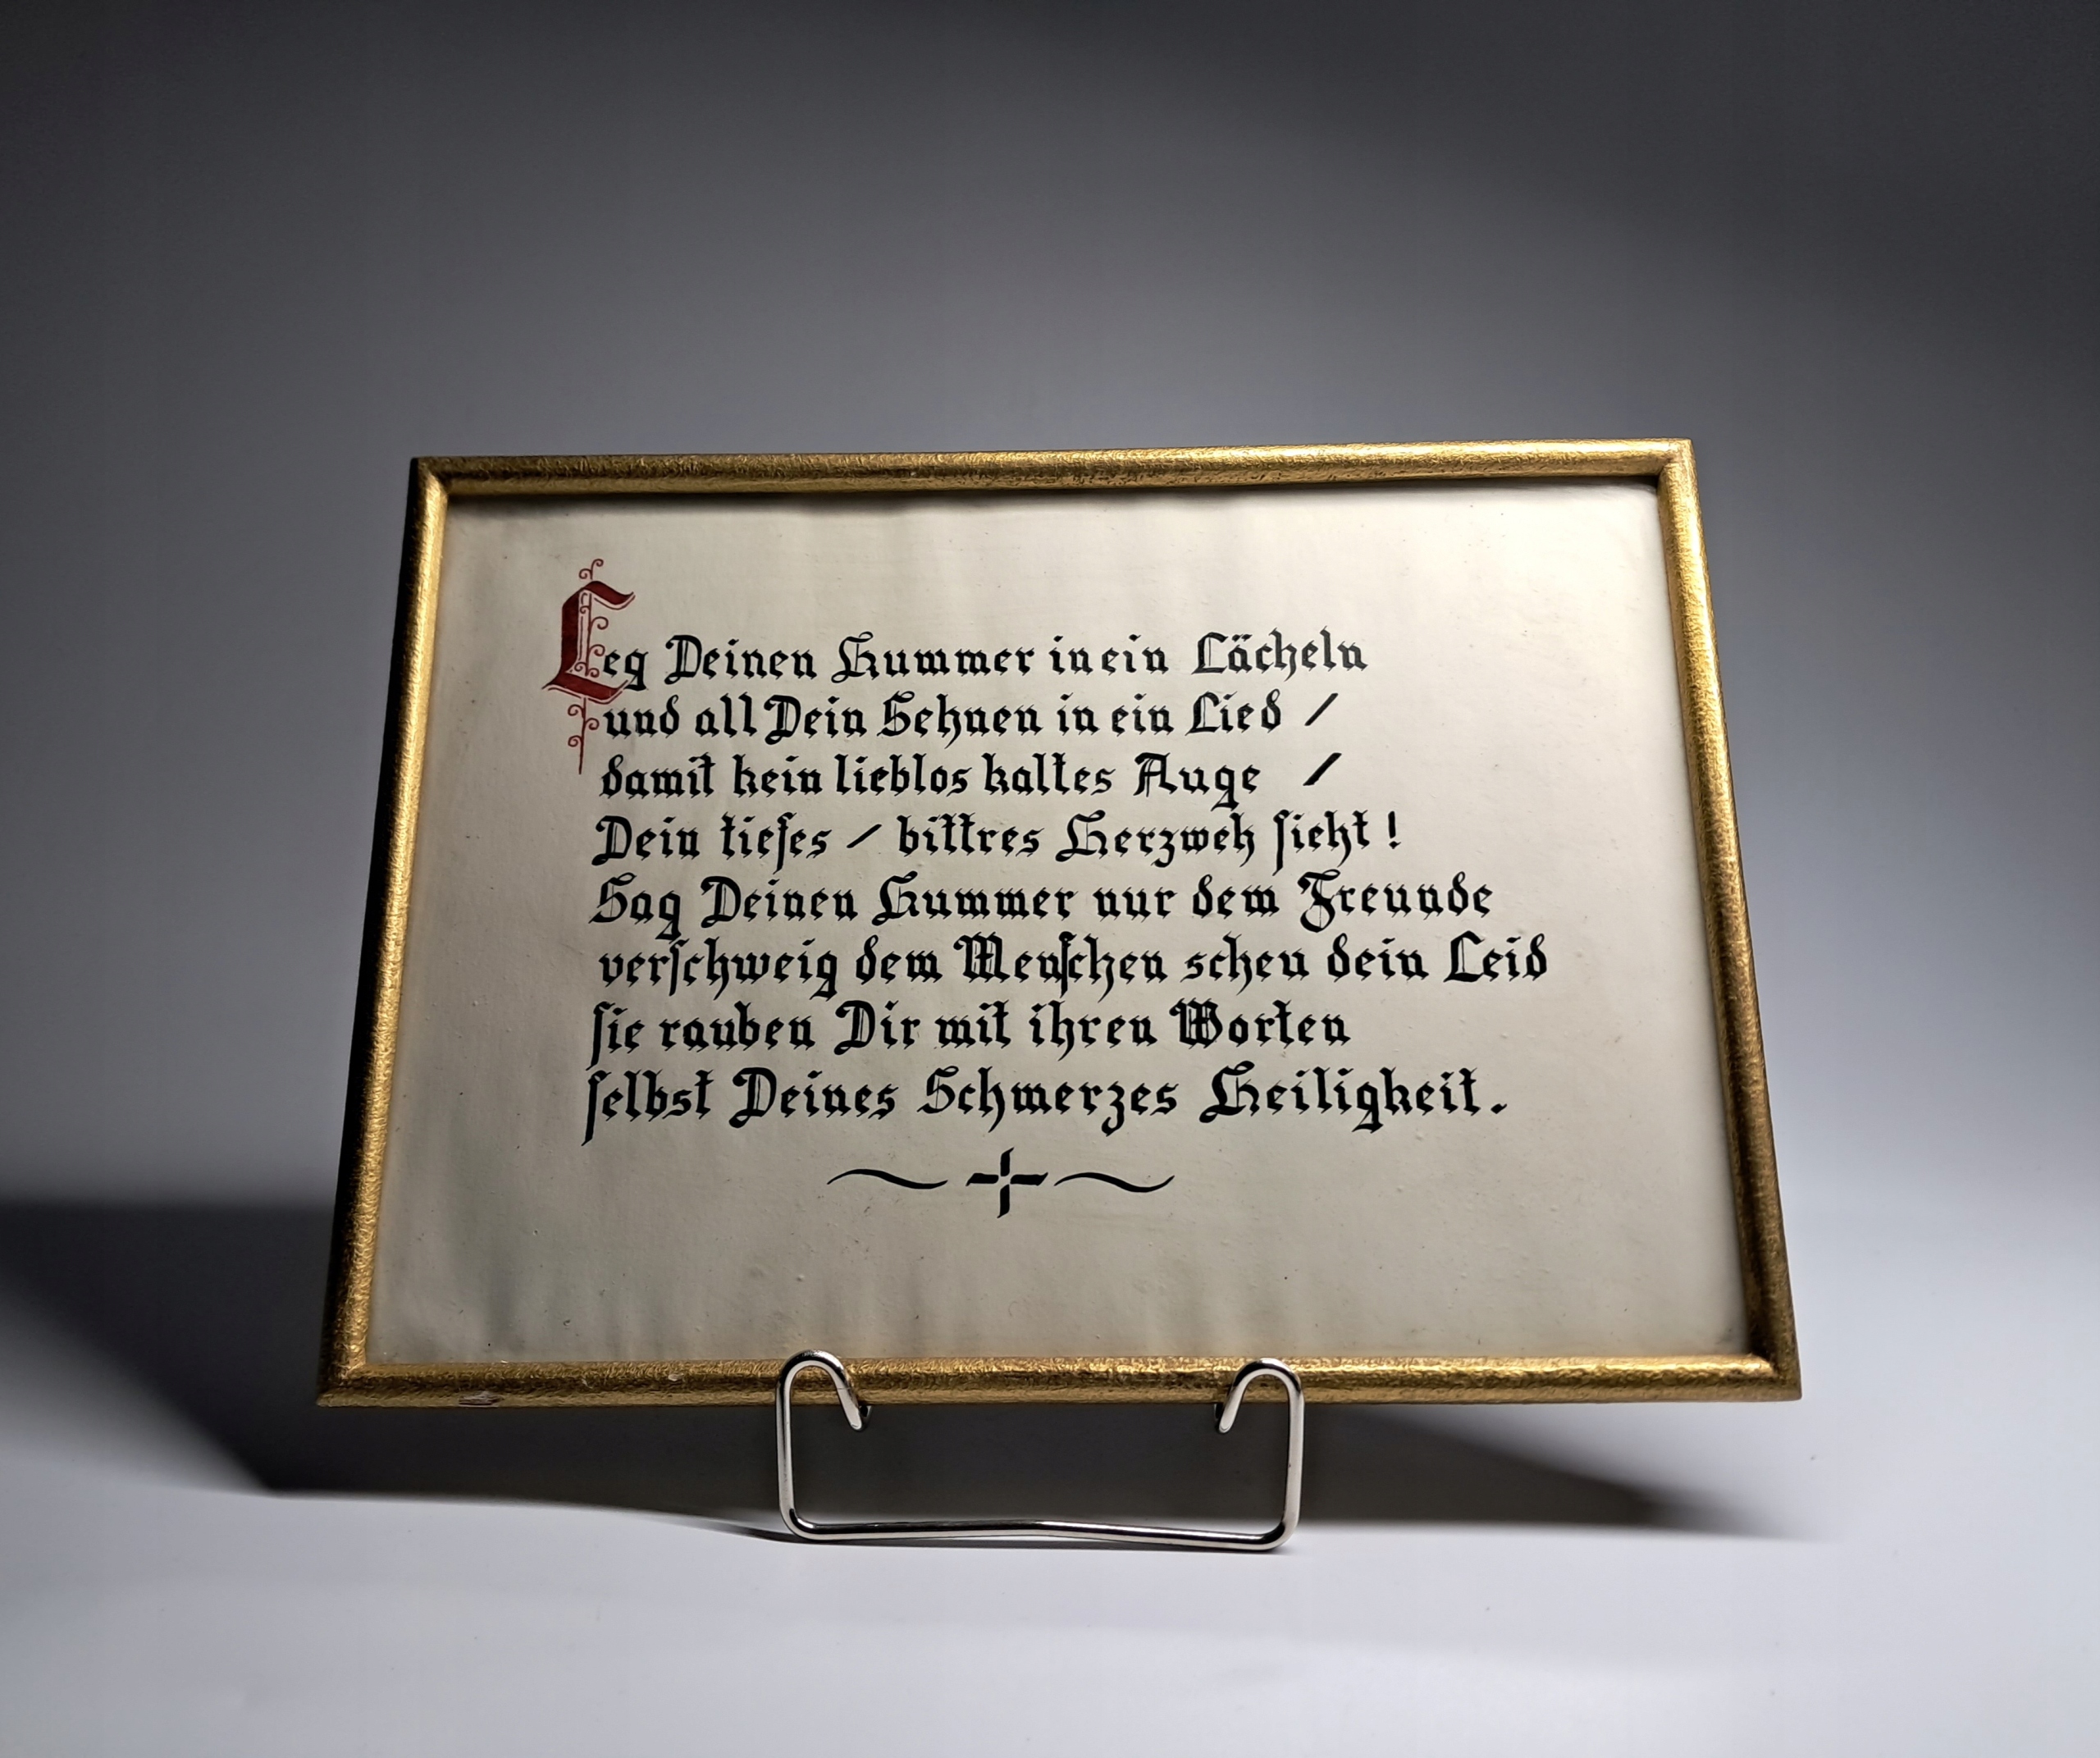 Leg Deinen Kummer in ein Lächeln
und all Dein Sehnen in ein Lied /
damit kein lieblos kaltes Auge /
Dein tiefes / bittres Herzweh ſieht !
Sag Deinen Kummer nur dem Freunde
verſchweig dem Menſchen scheu dein Leid
ſie rauben Dir mit ihren Worten
ſelbst Deines Schmerzes Heiligkeit.